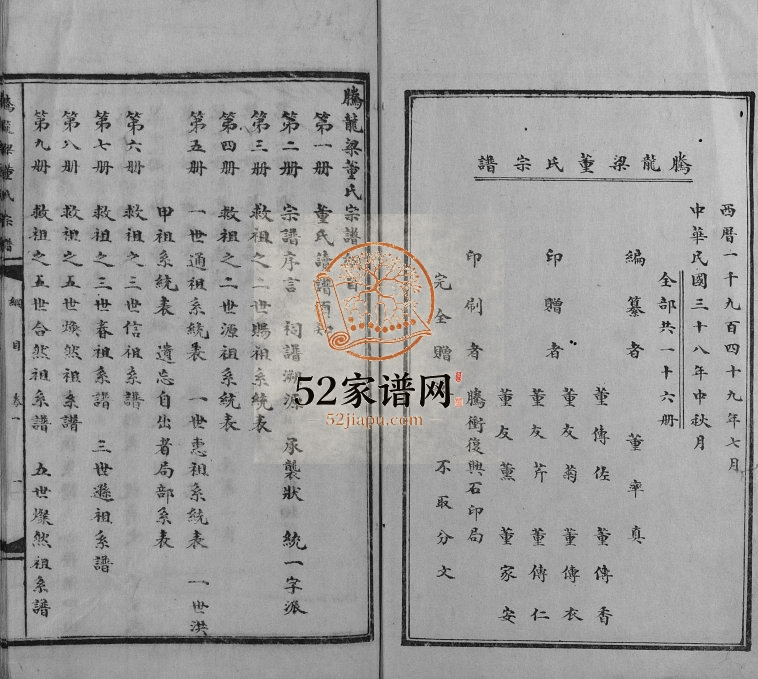 騰龍梁董氏宗譜
西曆一千九百四十九年七月
中華民國三十八年中秋月
全部共十六册
編纂者 董率真
印贈者
董傳佐 董傳香
董友菊 董傳衣
董友芹 董傳仁
董友薰 董家安
印刷者 騰衝復興石印局
完全贈 不取分文
騰龍梁董氏宗譜
第一册 董氏
第二册 宗譜序言 祠譜溯源 承襲狀 統一字派
第三册 救祖之二世賜祖系統表
第四册 救祖之二世源祖系統表
第五册 一世通祖系統表 一世惠祖系統表 一世洪
甲祖系統表 遺忘自出者局部系表
第六册 救祖之三世信祖系譜
第七册 救祖之三世春祖系譜 三世遜祖系譜
第八册 救祖之五世煥然祖系譜
第九册 救祖之五世合然祖系譜 五世燦然祖系譜
騰龍梁董氏宗譜
綱目
卷一
一
52家谱网
52jiapu.com